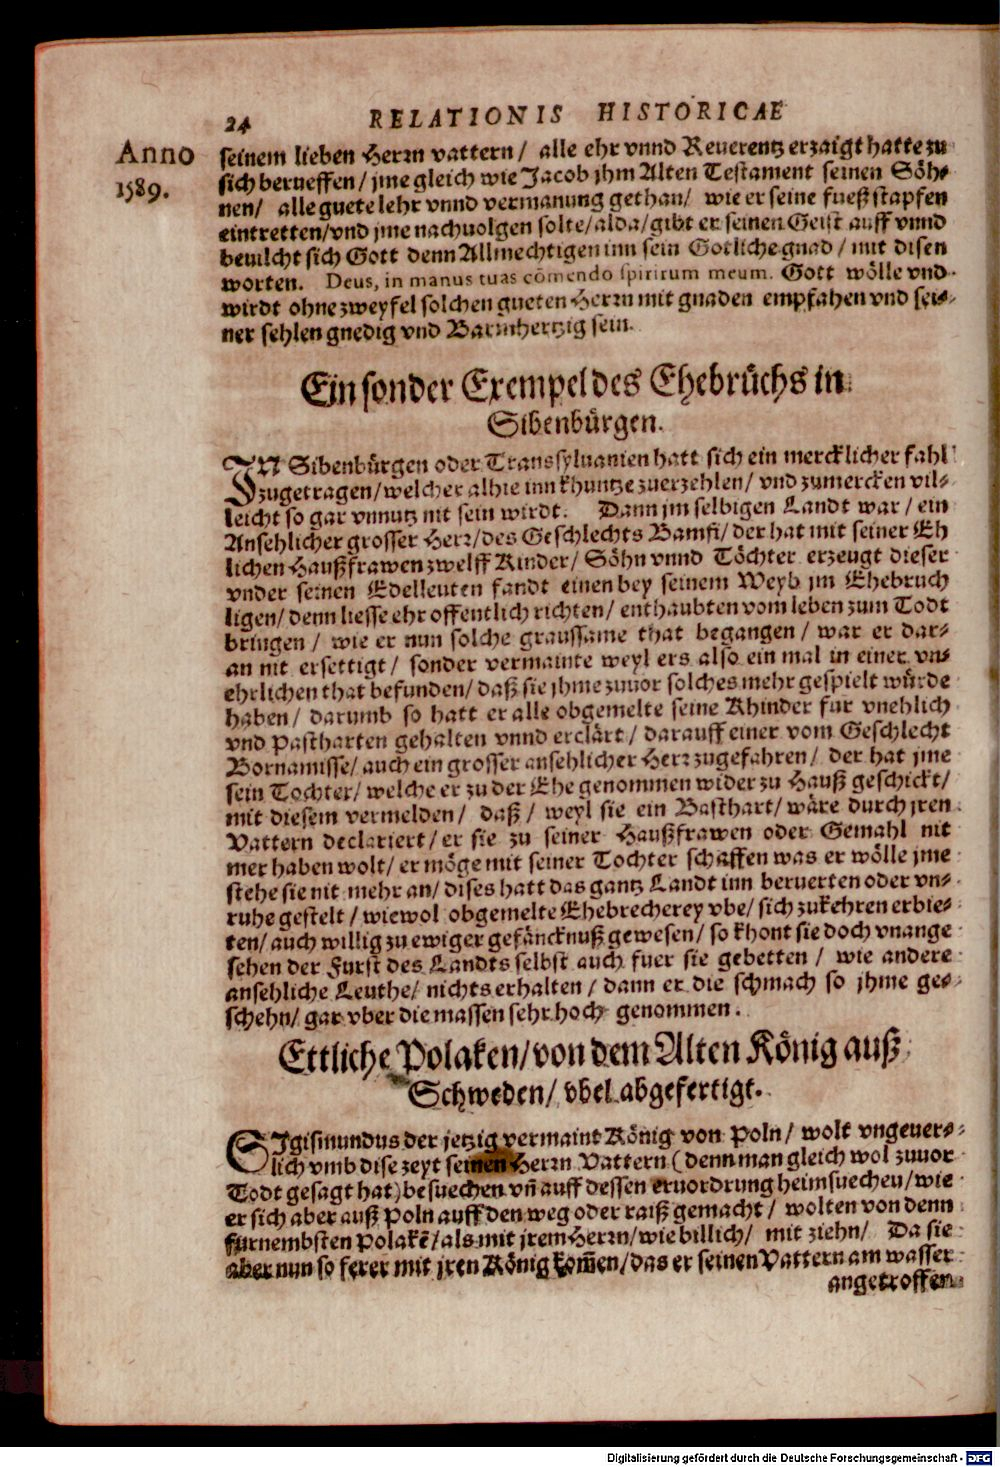 24 RELATIONIS HISTORICAE
Anno
1589.
seinem lieben Herrn vattern/ alle ehr vnnd Reuerentz erzaigt hatte zu
sich berueffen/ jme gleich wie Jacob jhm Alten Testament seinen Söh-
nen/ alle guete lehr vnnd vermanung gethan/ wie er seine fueßstapfen
eintretten/vnd jme nachuolgen solte/alda/gibt er seinen Geist auff vnnd
beuilcht sich Gott denn Allmechtigen inn sein Götliche gnad/ mit disen
worten. Deus, in manus tuas cōmendo spiritum meum. Gott wölle vnd
wirdt ohne zweyfel solchen gueten Herrn mit gnaden empfahen vnd sei-
ner sehlen gnedig vnd Barmhertzig sein.
Ein sonder Exempel des Ehebrüchs in
Sibenbürgen.
IN Sibenbürgen oder Transsyluanien hatt sich ein mercklicher fahl
zugetragen/welcher alhie inn khuntze zuerzehlen/ vnd zumercken vil-
leicht so gar vnnutz nit sein wirdt. Dann jm selbigen Landt war/ ein
Ansehlicher grosser Herr/des Geschlechts Bamfi/der hat mit seiner Eh
lichen Haußfrawen zwelff Kinder/ Söhn vnnd Töchter erzeugt dieser
vnder seinen Edelleuten fandt einen bey seinem Weyb jm Ehebruch
ligen/ denn liesse ehr offentlich richten/ enthaubten vom leben zum Todt
bringen/ wie er nun solche graussame that begangen/ war er dar-
an nit ersettigt/ sonder vermainte weyl ers also ein mal in einer vn-
ehrlichen that befunden/ daß sie jhme zuuor solches mehr gespielt würde
haben/ darumb so hatt er alle obgemelte seine Khinder fur vnehlich
vnd Pastharten gehalten vnnd erclärt/ darauff einer vom Geschlecht
Bornamisse/ auch ein grosser ansehlicher Herr zugefahren/ der hat jme
sein Tochter/ welche er zu der Ehe genommen wider zu Hauß geschickt/
mit diesem vermelden/ daß/ weyl sie ein Basthart/ wäre durch jren
Vattern declariert/ er sie zu seiner Haußfrawen oder Gemahl nit
mer haben wolt/ er möge mit seiner Tochter schaffen was er wölle jme
stehe sie nit mehr an/ dises hatt das gantz Landt inn beruerten oder vn-
ruhe gestelt/ wiewol obgemelte Ehebrecherey vbe/ sich zukehren erbie-
ten/ auch willig zu ewiger gefäncknuß gewesen/ so khont sie doch vnange
sehen der Furst des Landts selbst auch fuer sie gebetten/ wie andere
ansehliche Leuthe/ nichts erhalten/ dann er die schmach so jhme ge-
schehn/ gar vber die massen sehr hoch genommen.
Ettliche Polaken/von dem Alten König auß
Schweden/ vbel abgefertigt.
SIgismundus der jetzig vermaint König von Poln/ wolt vngeuer-
lich vmb dise zeyt seinen Herrn Vattern (denn man gleich wol zuuor
Todt gesagt hat) besuechen vn̄ auff dessen eruordrung heimsuechen/wie
er sich aber auß Poln auff den weg oder raiß gemacht/ wolten von denn
furnembsten Polakē/als mit jrem Herrn/wie billich/ mit ziehn/ Da sie
aber nun so ferer mit jren König kom̄en/das er seinen Vattern am wasser
angetroffen
Digitalisierung gefördert durch die Deutsche Forschungsgemeinschaft - DFG